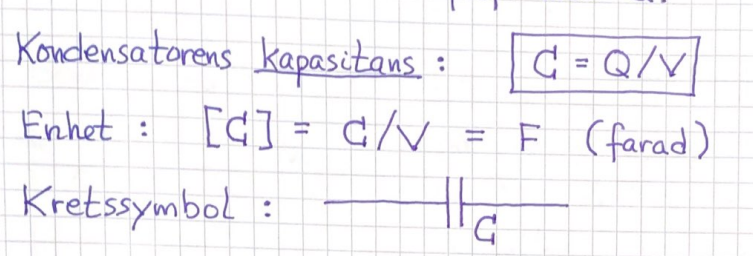 Kondensatorens kapasitans : C = Q/V
Enhet : [C] = C/V = F (farad)
Kretssymbol :
C